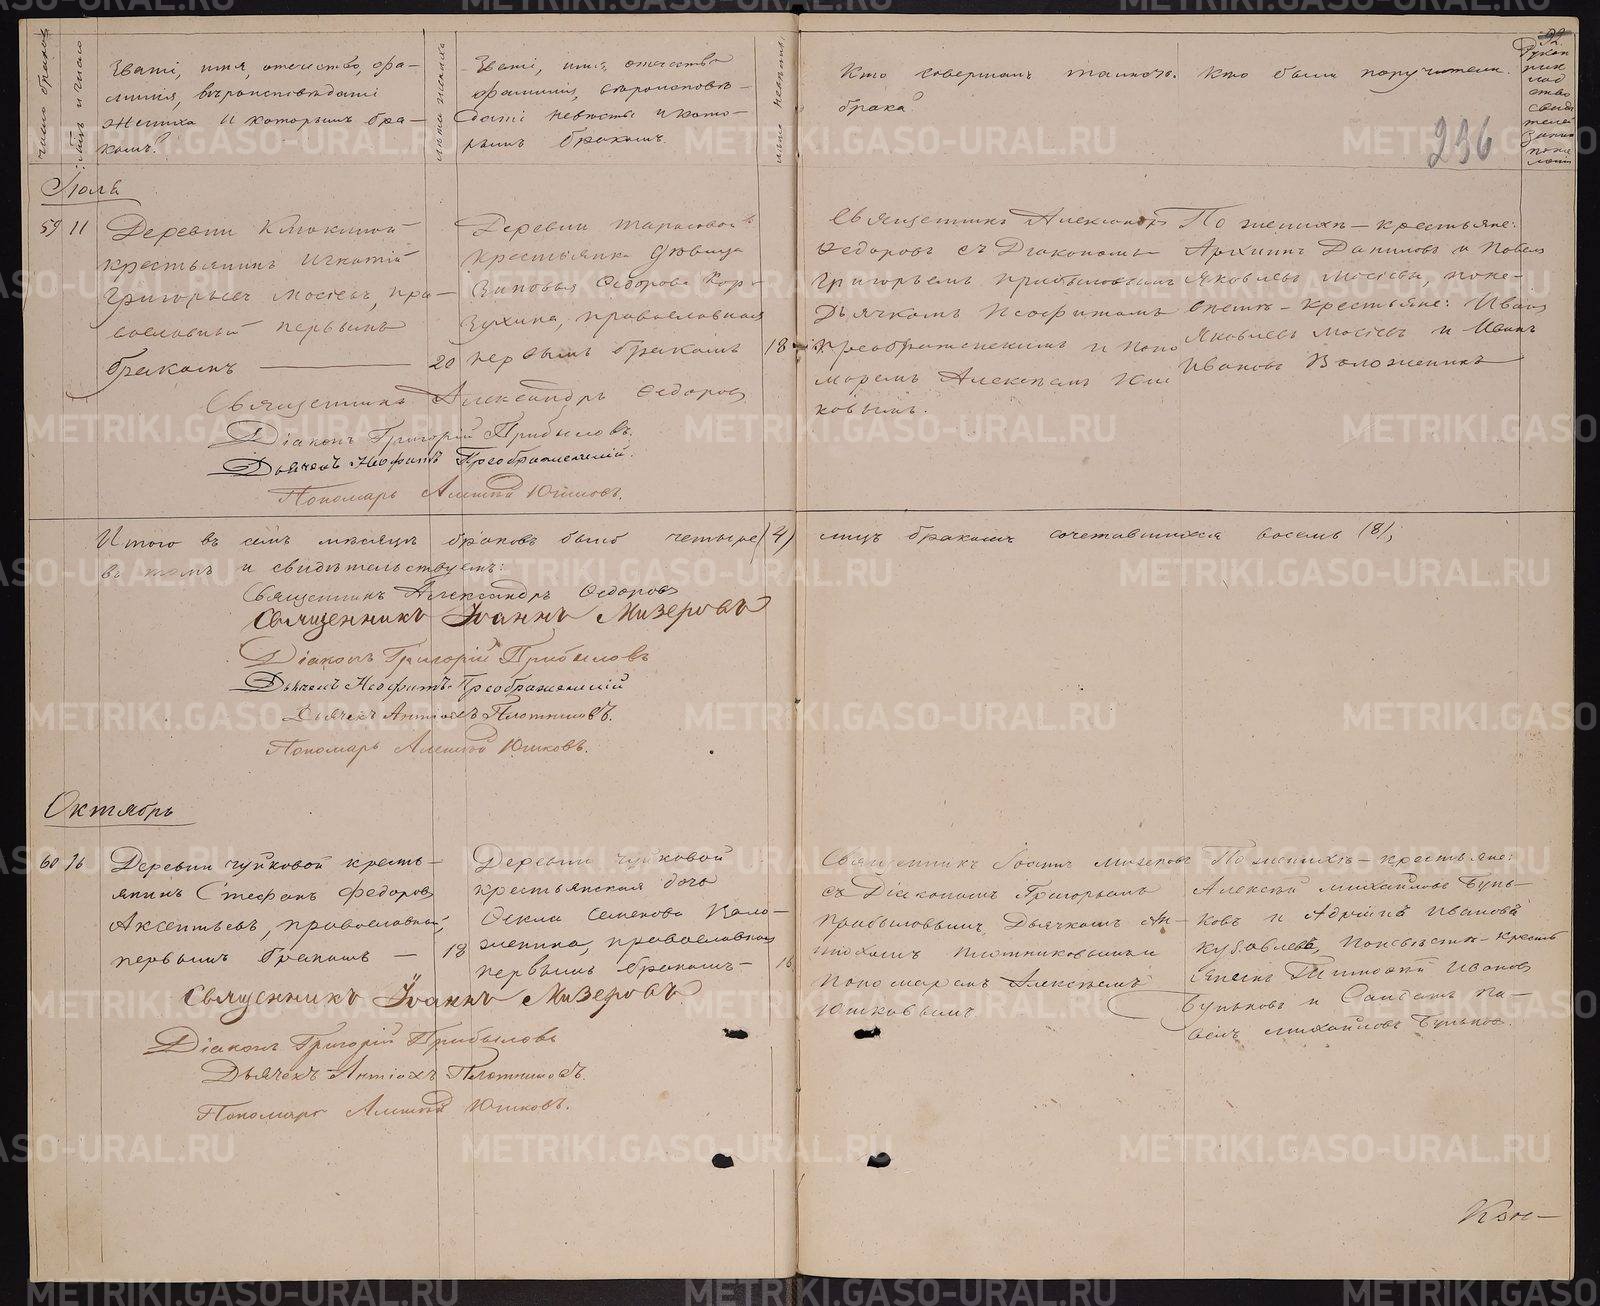 Званіе, имя, отечество, фа-
милія, вѣроисповѣданіе
жениха и которымъ бра-
комъ?
Званіе, имя, отечество
фамилія, вѣроисповѣ-
даніе невѣсты и кото-
рымъ бракомъ
Кто совершалъ таинство
брака?
Кто были поручители.
92.
236
Іюля
59 11
Деревни
крестьянинъ Игнатій
Григорьевъ Мосіевъ, пра-
вославный первымъ
бракомъ — 20
Деревни Тарасовой
крестьянка дѣвица
Зиновія Ѳедорова Кор-
зухина, православная
первымъ бракомъ 18
Священникъ Александръ
Ѳедоровъ съ Діакономъ
Григорьемъ Прибыловымъ
Дьячкомъ Неофитомъ
Преображенскимъ и поно
маремъ Алексѣемъ Юш
ковымъ.
По женихѣ – крестьяне:
Архиппъ Даниловъ и Павелъ
Яковлевъ Мосіевы, по не-
вѣстѣ – крестьяне: Иванъ
Яковлевъ Мосіевъ и Иванъ
Ивановъ Воложенинъ
Священникъ Александръ Ѳедоровъ
Діаконъ Григорій Прибыловъ.
Дьячекъ Неофитъ Преображенскій.
Пономарь Алексѣй Юшковъ.
Итого въ семъ мѣсяцѣ браковъ было четыре (4) лицъ бракомъ сочетавшихся восемь (8);
въ томъ и свидѣтельствуемъ:
Священникъ Александръ Ѳедоровъ
Священникъ Іоаннъ Мизеровъ
Діаконъ Григорій Прибыловъ
Дьячекъ Неофитъ Преображенскій
Дьячекъ Антіохъ Плотниковъ.
Пономарь Алексѣй Юшковъ.
Октябрь
60 16
Деревни Чуйковой кресть-
янинъ Стефанъ Федоровъ
Аксентьевъ, православный,
первымъ бракомъ — 18
Деревни Чуйковой
крестьянская дочь
Ѳекла Семенова Воло-
женина, православная
первымъ бракомъ – 16
Священникъ Іоаннъ Мизеровъ
съ Діакономъ Григорьемъ
Прибыловымъ, Дьячкомъ Ан-
тіохомъ Плотниковымъ и
Пономаремъ Алексѣемъ
Юшковымъ.
По женихѣ – крестьяне:
Алексѣй Михайловъ Бунь-
ковъ и Адріанъ Ивановъ
по невѣстѣ – кресть
янинъ Тимофей Ивановъ
Буньковъ и Солдатъ Па-
велъ Михайловъ Буньковъ.
Священникъ Іоаннъ Мизеровъ.
Діаконъ Григорій Прибыловъ
Дьячекъ Антіохъ Плотниковъ.
Пономарь Алексѣй Юшковъ.
METRIKI.GASO-URAL.RU